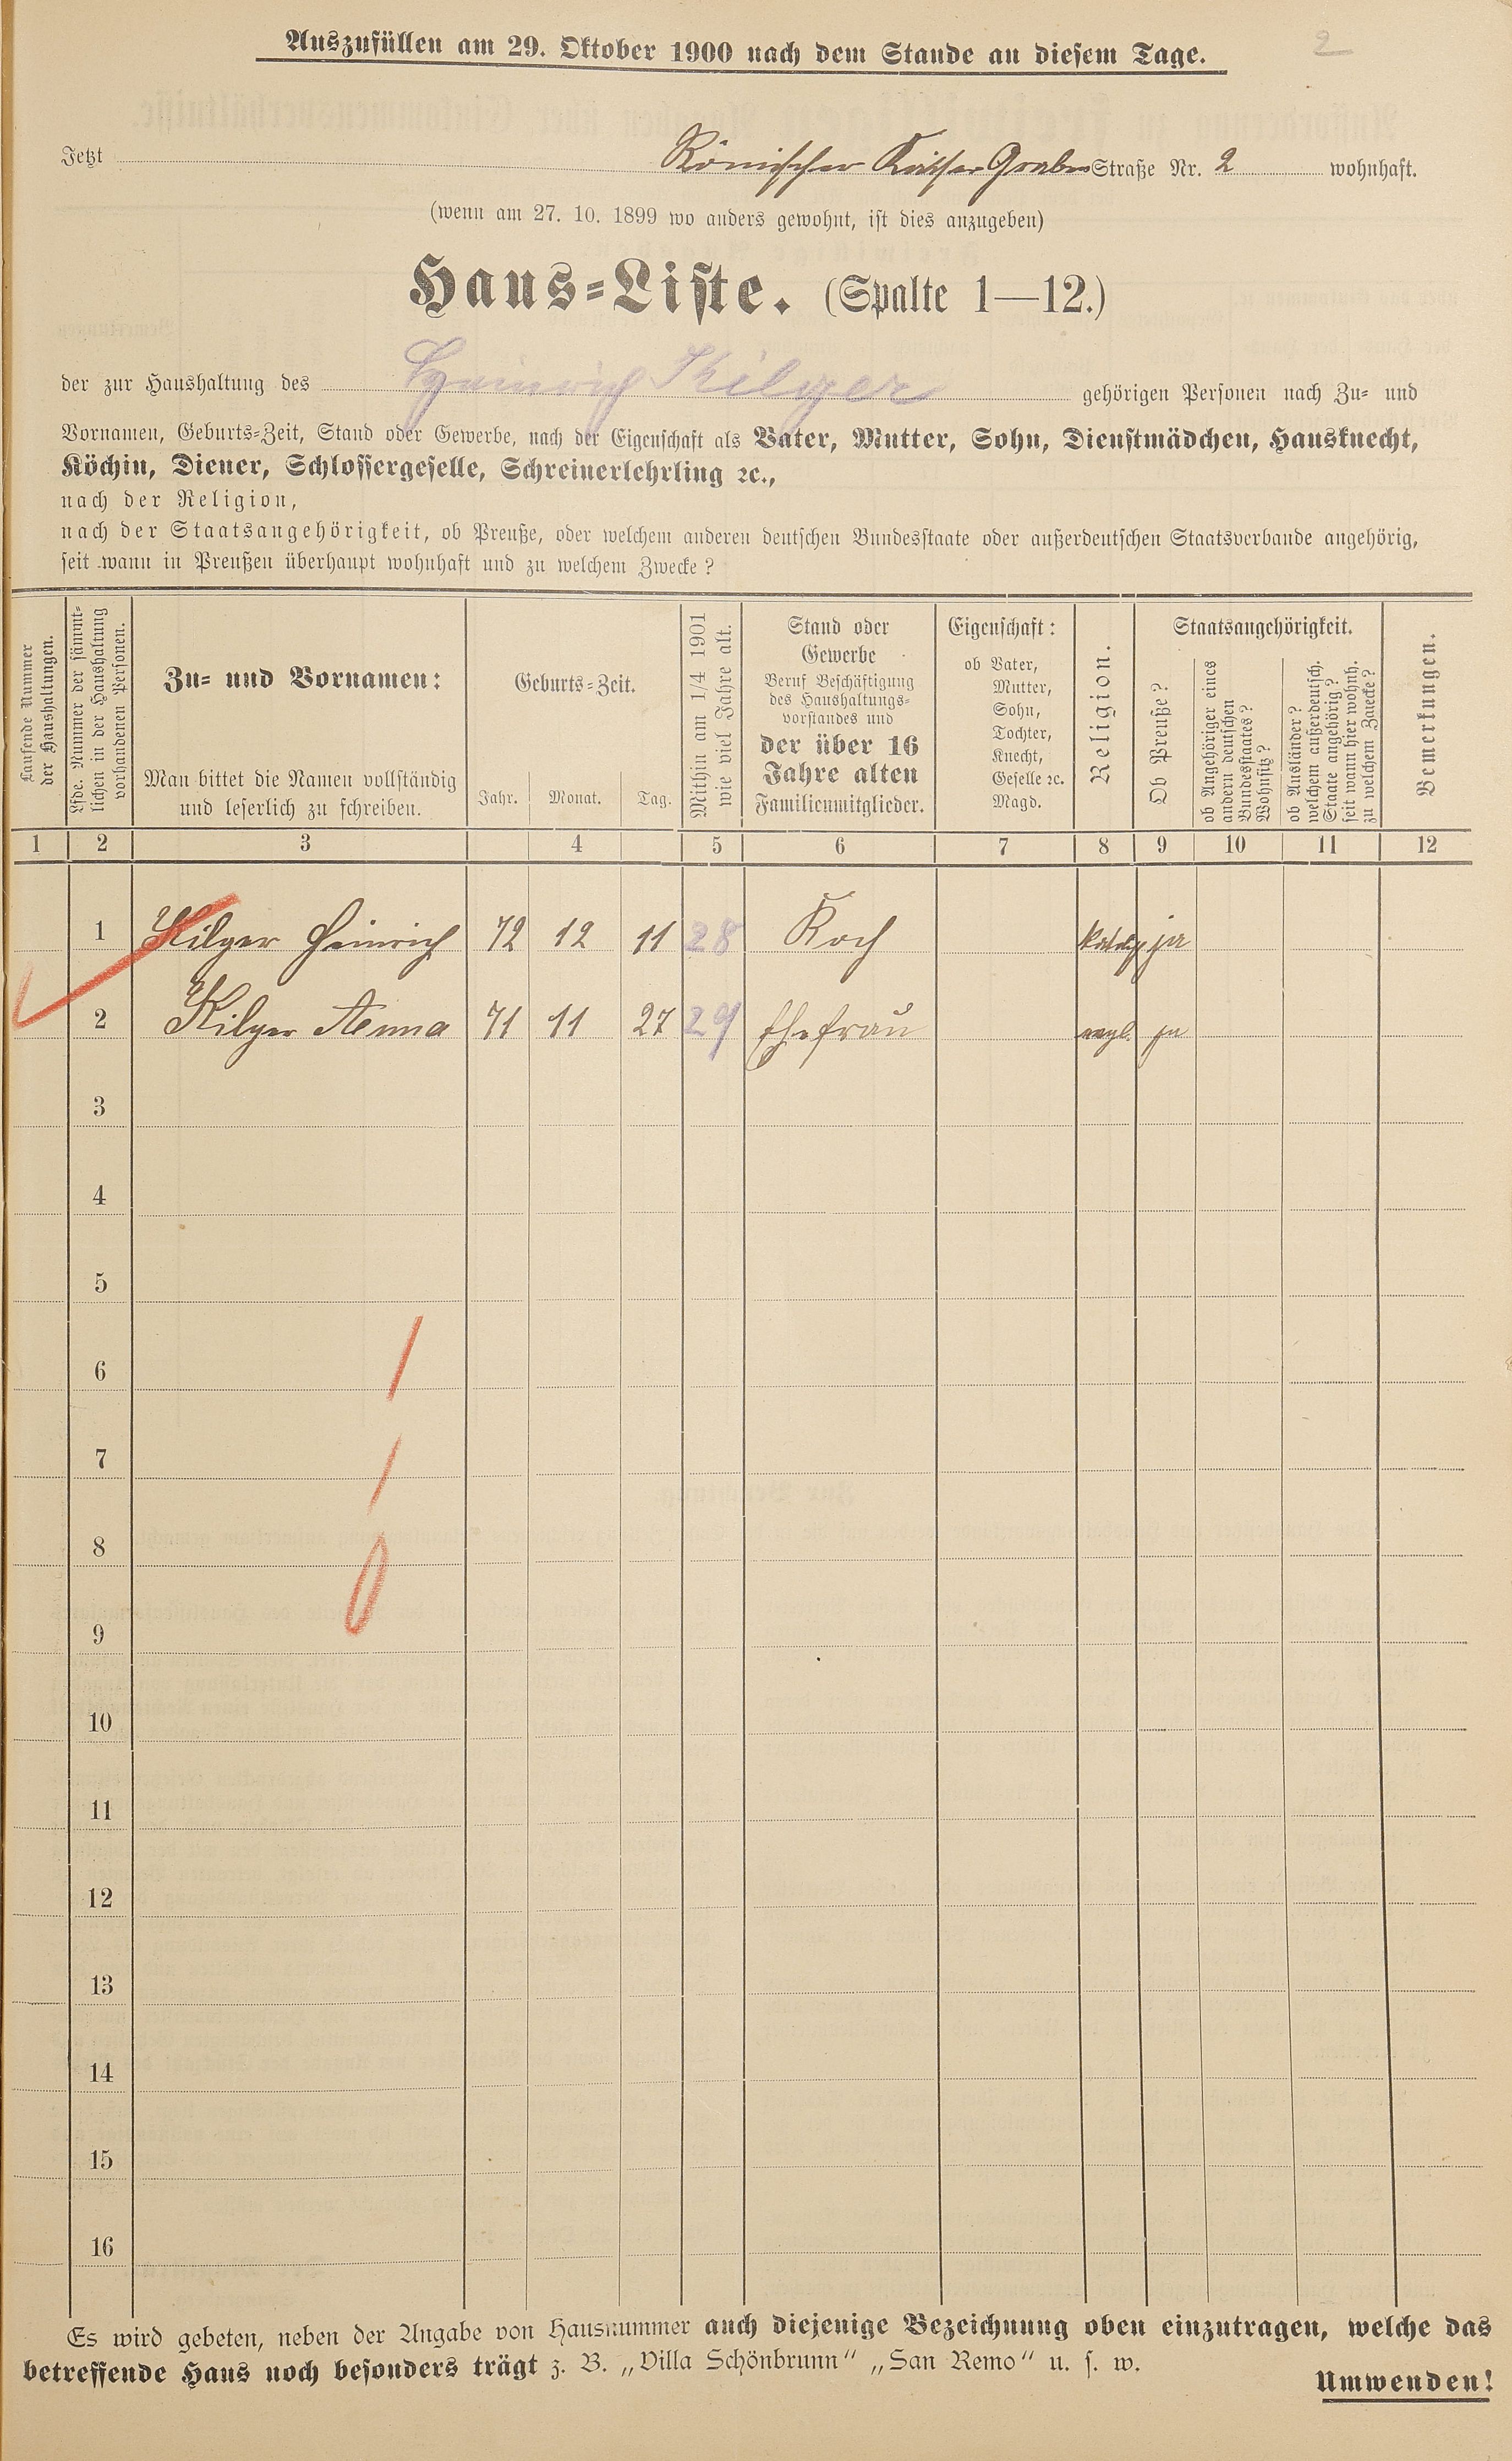 Auszufüllen am 29. Oktober 1900 nach dem Stande an diesem Tage.
2
Jetzt Römischer Kaiser Graben Straße Nr. 2 wohnhaft.
(wenn am 27. 10. 1899 wo anders gewohnt, ist dies anzugeben)
Haus-Liste. (Spalte 1—12.)
der zur Haushaltung des Heinrich Kilger gehörigen Personen nach Zu- und
Vornamen, Geburts-Zeit, Stand oder Gewerbe, nach der Eigenschaft als Vater, Mutter, Sohn, Dienstmädchen, Hausknecht,
Köchin, Diener, Schlossergeselle, Schreinerlehrling ꝛc.,
nach der Religion,
nach der Staatsangehörigkeit, ob Preuße, oder welchem anderen deutschen Bundesstaate oder außerdeutschen Staatsverbande angehörig,
seit wann in Preußen überhaupt wohnhaft und zu welchem Zwecke?
Laufende Nummer
der Haushaltungen.
Lfde. Nummer der sämmt-
lichen in der Haushaltung
vorhandenen Personen.
Zu- und Vornamen:
Man bittet die Namen vollständig
und leserlich zu schreiben.
Geburts-Zeit.
Jahr. Monat. Tag.
Mithin am 1/4 1901
wie viel Jahre alt.
Stand oder
Gewerbe
Beruf Beschäftigung
des Haushaltungs-
vorstandes und
der über 16
Jahre alten
Familienmitglieder.
Eigenschaft:
ob Vater,
Mutter,
Sohn,
Tochter,
Knecht,
Geselle ꝛc.
Magd.
Religion.
Staatsangehörigkeit.
Ob Preuße?
ob Angehöriger eines
andern deutschen
Bundesstaates?
Wohnsitz?
ob Ausländer?
welchem außerdeutsch.
Staate angehörig?
seit wann hier wohnh.
zu welchem Zwecke?
Bemerkungen.
1 2 3 4 5 6 7 8 9 10 11 12
1 Kilger Heinrich 72 12 11 28 Koch kathol. ja
2 Kilger Anna 71 11 27 29 Ehefrau evgl. ja
3
4
5
6
7
8
9
10
11
12
13
14
15
16
Es wird gebeten, neben der Angabe von Hausnummer auch diejenige Bezeichnung oben einzutragen, welche das
betreffende Haus noch besonders trägt z. B. „Villa Schönbrunn“ „San Remo“ u. s. w.
Umwenden!